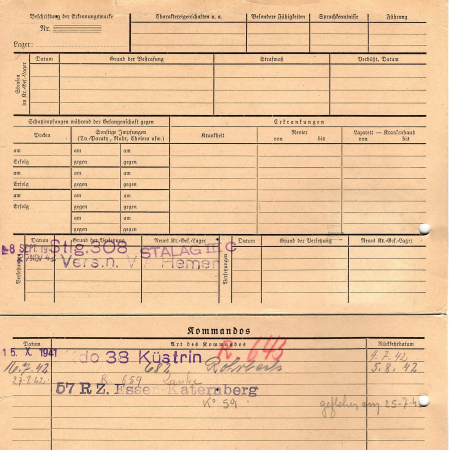 Beschriftung der Erkennungsmarke
Nr.
Lager:
Charaktereigenschaften u. a.
Besondere Fähigkeiten
Sprachkenntnisse
Führung
Strafen im Kr.-Gef.-Lager
Datum
Grund der Bestrafung
Strafmaß
Verbüßt, Datum
Schutzimpfungen während der Gefangenschaft gegen
Erkrankungen
Pocken
Sonstige Impfungen
(Ty.-Paraty., Ruhr, Cholera usw.)
Krankheit
Revier
von bis
Lazarett — Krankenhaus
von bis
am am am
Erfolg gegen gegen
am am am
Erfolg gegen gegen
am am am
Erfolg gegen gegen
am am
gegen gegen
Versetzung
Datum
Grund der Versetzung
Neues Kr.-Gef.-Lager
Versetzungen
Datum
Grund der Versetzung
Neues Kr.-Gef.-Lager
8 SEPT. Stlg. 308 STALAG III C
NOV Vers. n. V Hemer
Kommandos
Datum
Art des Kommandos
Rückkehrdatum
15. X. 1941 do 33 Küstrin R 643 9.7.42
16.7.42 682 5.8.42
R 659
57 R Z. Esser-Katernberg
geflohen am 25-7-4